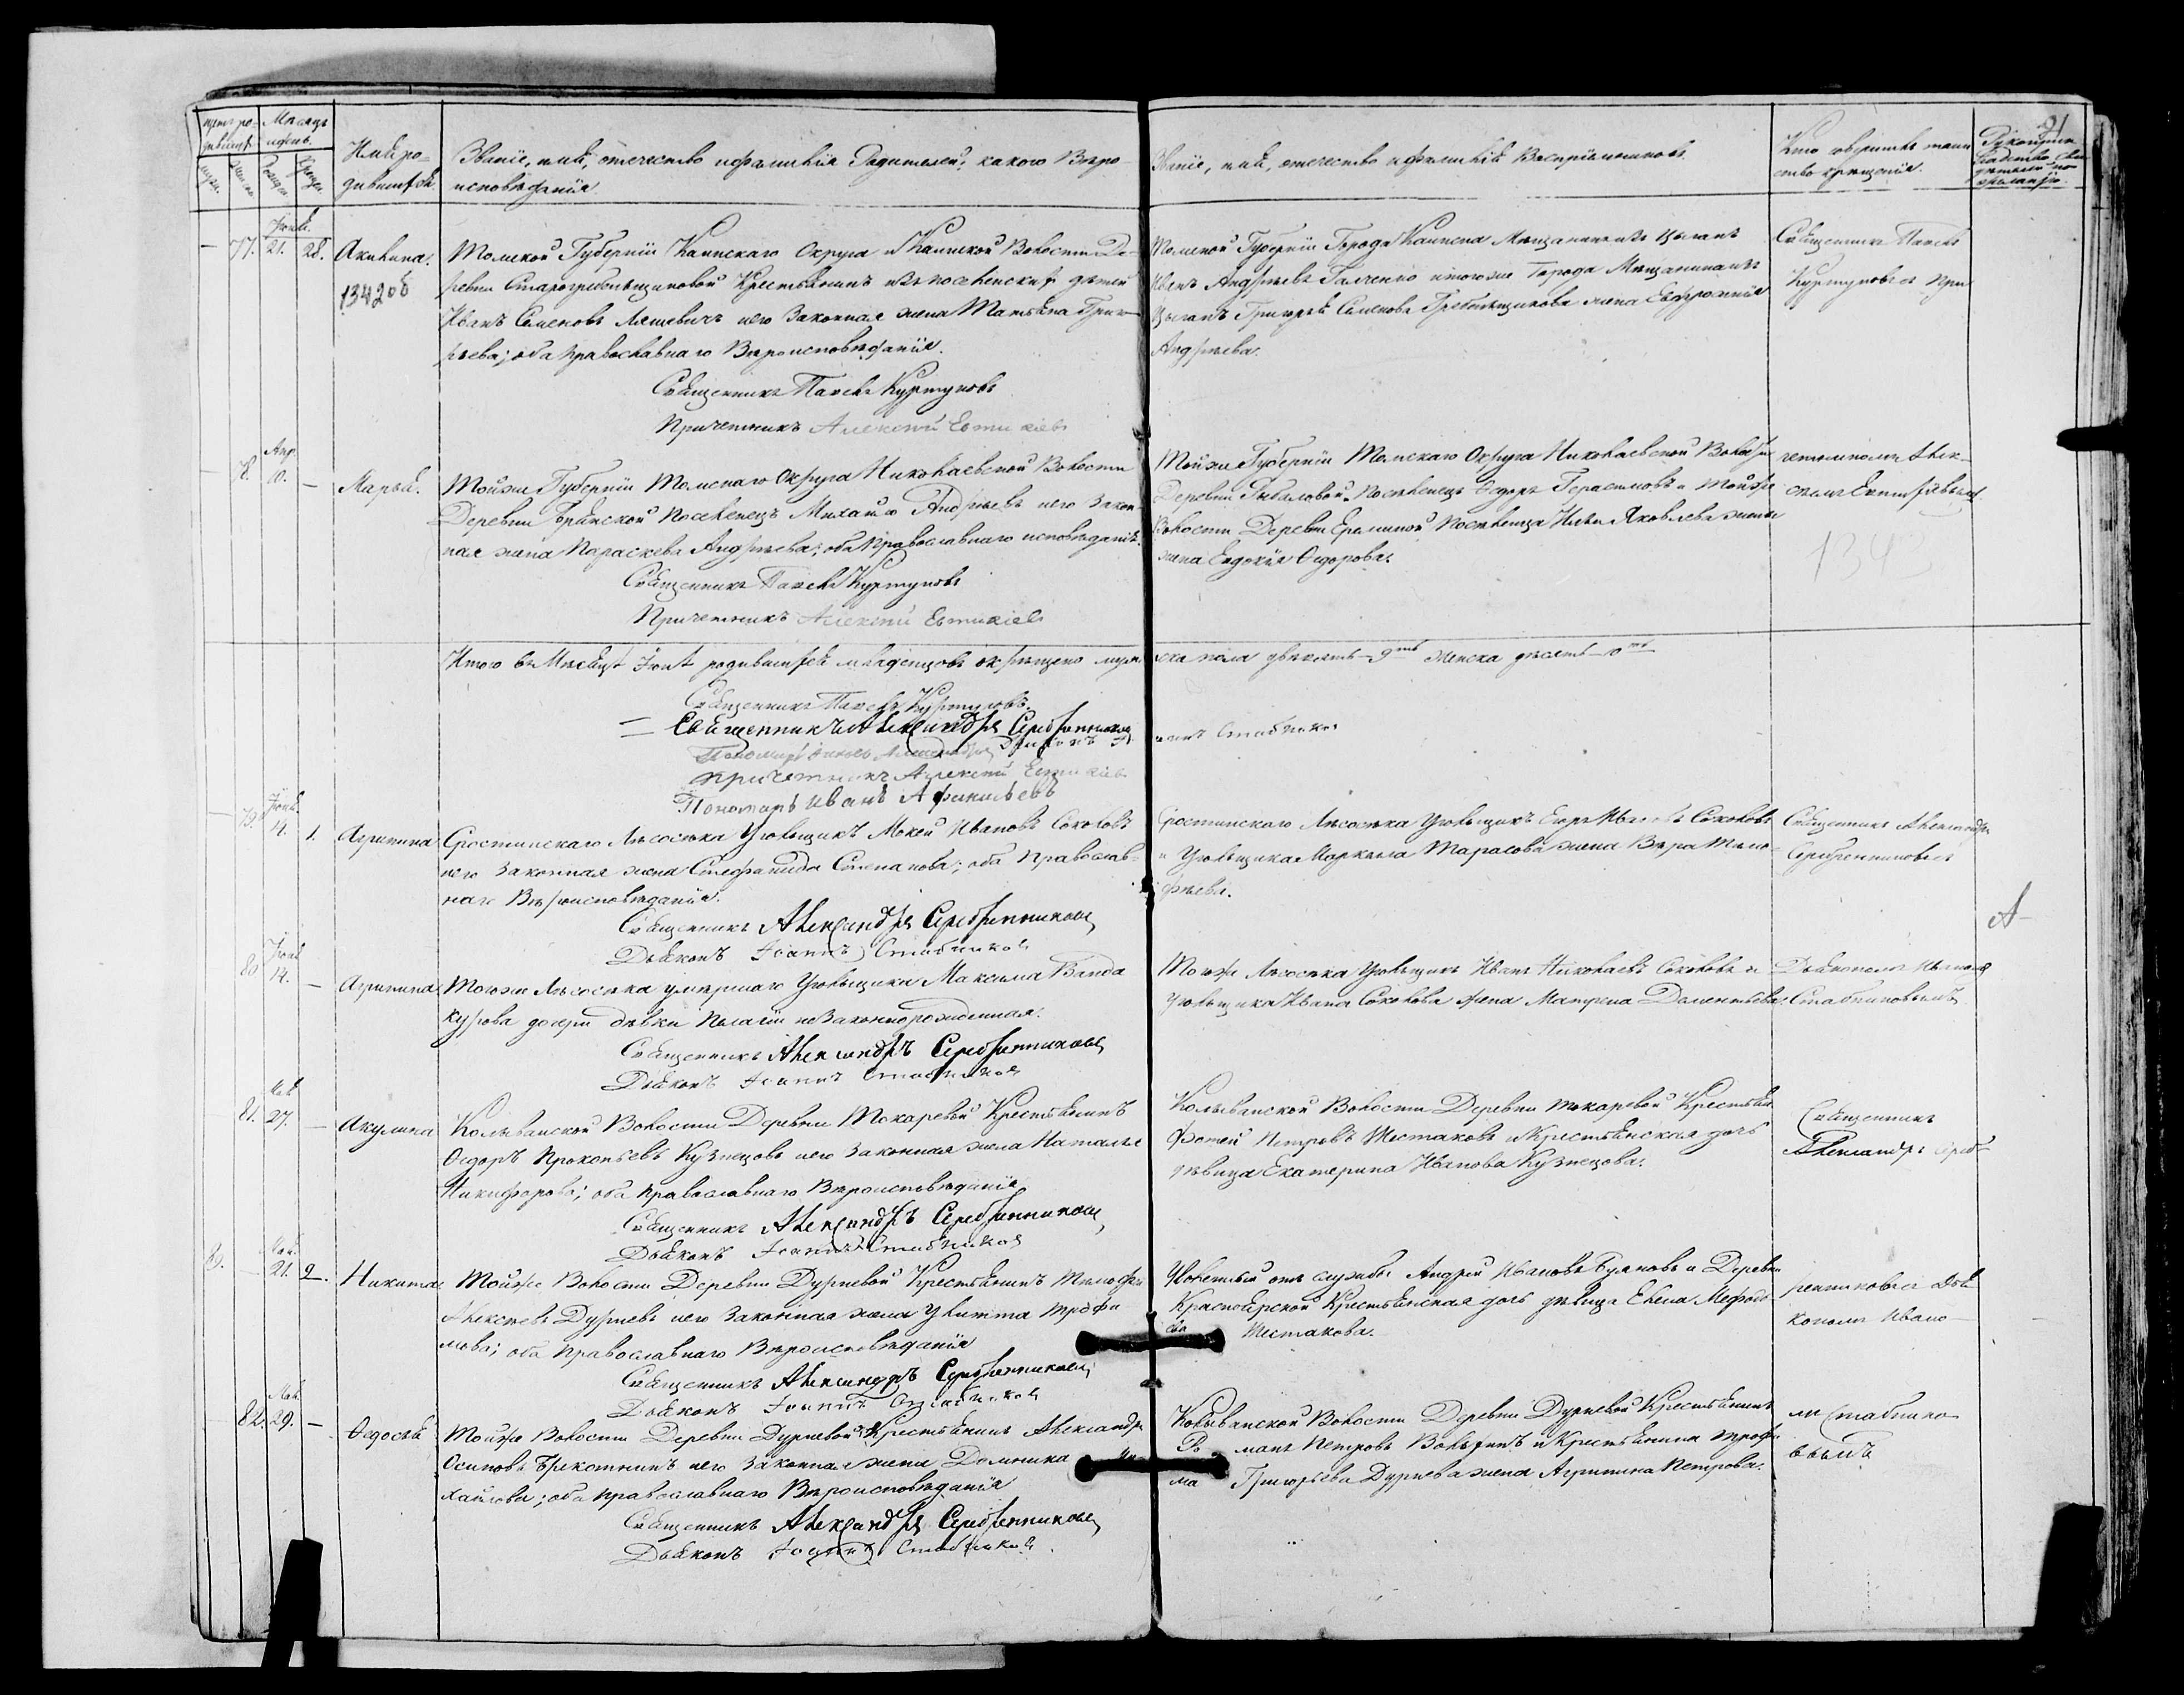 91
Счетъ ро-
дившихся
Мѣсяцъ
и день.
Имя ро-
дившихся.
Званіе, имя, отечество и фамилія Родителей, какого Вѣро-
исповѣданія
Званіе, имя, отечество и фамилія Воспріемниковъ.
Кто совершалъ таин-
ство крещенія.
Іюня.
— 77. 21. 28. Акилина.
13420б
Томской Губерніи Каинскаго Округа и Каинской Волости Де-
ревни Старогребенщиковой Крестьянинъ изъ поселенскихъ дѣтей
Иванъ Семеновъ Ляшевичъ и его Законная жена Татьяна Григо-
рьева; оба православнаго Вѣроисповѣданія.
Священникъ Павелъ Куртуковъ
Причетникъ Алексѣй
Томской Губерніи Города Каинска Мѣщанинъ изъ Цыганъ
Иванъ Андреевъ Галченко и тогоже Города Мѣщанина изъ
Цыганъ Григорія Семенова Гребенщикова жена Евфросинія
Андреева.
Священникъ Павелъ
Куртуковъ съ при-
Апр.
— 78. 10. — Марья.
Тойже Губерніи Томскаго Округа Николаевской Волости
Деревни Поселенецъ Михайло Андреевъ и его Закон-
ная жена Параскева Андреева; оба Православнаго исповѣданія.
Священникъ Павелъ Куртуковъ
Причетникъ Алексѣй
Тойже Губерніи Томскаго Округа Николаевской Волости
Деревни Поселенецъ Ѳедоръ Герасимовъ и Тойже
Волости Деревни Еремкиной Поселенца Ильи Яковлева жена
жена Евдокія Ѳедорова.
четникомъ Алек-
1343
Итого въ Мѣсяцѣ Іюнѣ родившихся младенцовъ окрещено муж
еска пола девять — 9ть женска десять — 10ть
Священникъ Павелъ Куртуковъ.
— Священникъ Александръ Серебренниковъ
Причетникъ Алексѣй
Пономарь Иванъ
Іюня.
— 79. 14. 1. Агрипина
Сростинскаго Лѣсосѣка Угольщикъ Мокей Ивановъ Соколовъ
и его Законная жена Стефанида Степанова; оба Православ-
наго Вѣроисповѣданія.
Священникъ Александръ Серебренниковъ
Дьяконъ Іоаннъ Стабниковъ
Сростинскаго Лѣсосѣка Угольщикъ Егоръ Ивановъ Соколовъ
и Угольщика Маркела Тарасова жена Вѣра Тимо-
фѣева.
Священникъ Александръ
Серебренниковъ съ
Іюня
80 14. — Агрипина
Тогоже Лѣсосѣка умершаго Угольщика Максима
дочери дѣвки Пелагіи незаконнорожденная.
Священникъ Александръ Серебренниковъ
Дьяконъ Іоаннъ Стабниковъ
Тогоже Лѣсосѣка Угольщикъ Иванъ Николаевъ Соколовъ и
Угольщика Ивана Соколова жена Матрена Дементьева.
Дьякономъ Иваномъ
Стабниковымъ
Мая
81. 27. — Акулина
Колыванской Волости Деревни Токаревой Крестьянинъ
Ѳедоръ Прокопьевъ Кузнецовъ и его Законная жена Наталья
Никифорова; оба православнаго Вѣроисповѣданія
Священникъ Александръ Серебренниковъ
Дьяконъ Іоаннъ Стабниковъ
Колыванской Волости Деревни Токаревой Крестьянинъ
Фотей Петровъ Шестаковъ и Крестьянская дочь
дѣвица Екатерина Иванова Кузнецова.
Священникъ
Александръ Сереб-
Мая.
21. 2. Никита
Тойже Волости Деревни Дурневой Крестьянинъ Тимофей
Алексѣевъ Дурневъ и его Законная жена Улитта Трофи-
мова; оба Православнаго Вѣроисповѣданія
Священникъ Александръ Серебренниковъ
Дьяконъ Іоаннъ Стабниковъ
Уволенный отъ службы Андрей Ивановъ Буяновъ и Деревни
Красноярской Крестьянская дочь дѣвица Елена
ева Шестакова.
ренниковъ съ Дья-
кономъ Ивано-
Мая
82. 29. — Ѳедосья
Тойже Волости Деревни Дурневой Крестьянинъ Александръ
Осиповъ и его Законная жена Домника Ми-
хайлова; оба православнаго Вѣроисповѣданія
Священникъ Александръ Серебренниковъ
Дьяконъ Іоаннъ Стабниковъ.
Колыванской Волости Деревни Дурневой Крестьянинъ
Романъ Петровъ и Крестьянина Трофи-
ма Григорьева Дурнева жена Агрипина Петрова.
мъ Стабнико-
вымъ